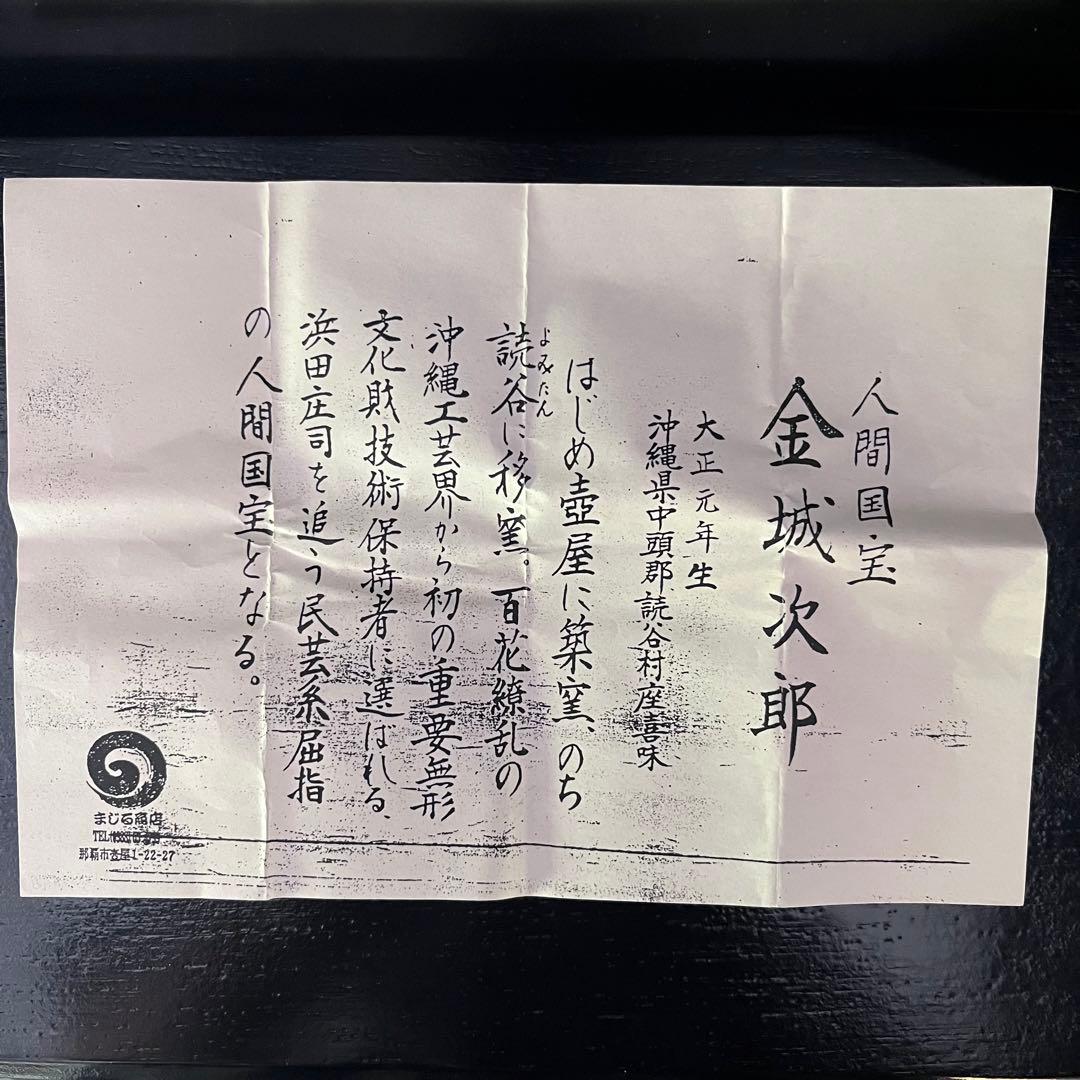 人間国宝
金城次郎
大正元年生
沖縄県中頭郡読谷村座喜味
はじめ壺屋に築窯、のち
読谷に移窯。百花繚乱の
よみたん
沖縄工芸界から初の重要無形
文化財技術保持者に選ばれる、
浜田庄司を追う民芸系屈指
の人間国宝となる。
まじる商店
TEL
那覇市壺屋1-22-27